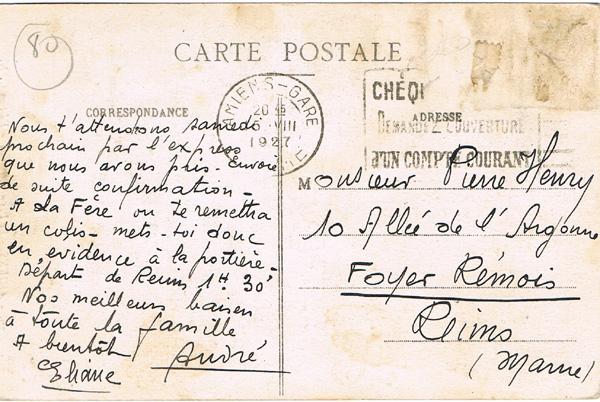 80
CARTE POSTALE
CORRESPONDANCE
AMIENS-GARE
20
5 VIII
1927
CHÈQ
ADRESSE
DEMANDEZ L'OUVERTURE
D'UN COMPTE COURANT
Nous t'attendons samedi
prochain par l'express
que nous avons pris. Envoie
de suite confirmation -
A La Fère on te remettra
un colis - mets-toi donc
en évidence à la portière -
Départ de Reims 1H 30'
Nos meilleurs baisers
à toute la famille
A bientôt
André
Eliane
Monsieur Pierre Henry
10 Allée de l'Argonne
Foyer Rémois
Reims
(Marne)